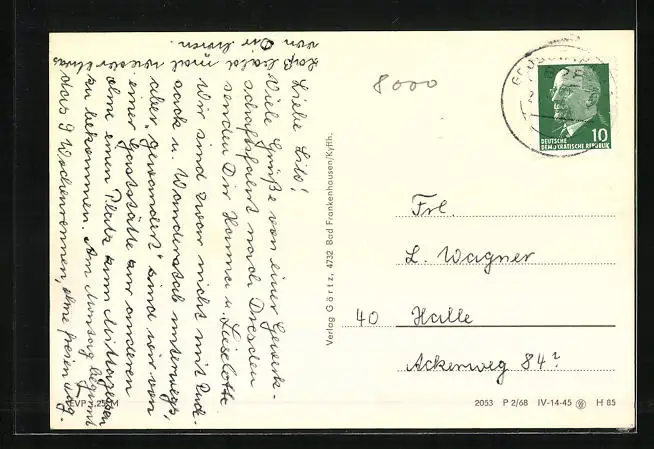 Liebe Lilo!
Viele Grüße von einer Gewerk-
schaftsfahrt nach Dresden
senden Dir Hanna u. Liselotte.
Wir sind zwar nicht mit Ruck-
sack u. Wanderstab unterwegs,
aber "gewandert" sind wir von
einer Gaststätte zur anderen
ohne einen Platz zum Mittagessen
zu bekommen. Am Montag beginnt
das 9 Wochenrennen, ohne freien Tag.
Laß bald mal wieder etwas
von Dir hören.
Verlag Görtz, 4732 Bad Frankenhausen/Kyffh.
8000
10
DEUTSCHE
DEMOKRATISCHE REPUBLIK
Frl.
L. Wagner
40 Halle
Ackerweg 84?
2053 P 2/68 IV-14-45 H 85